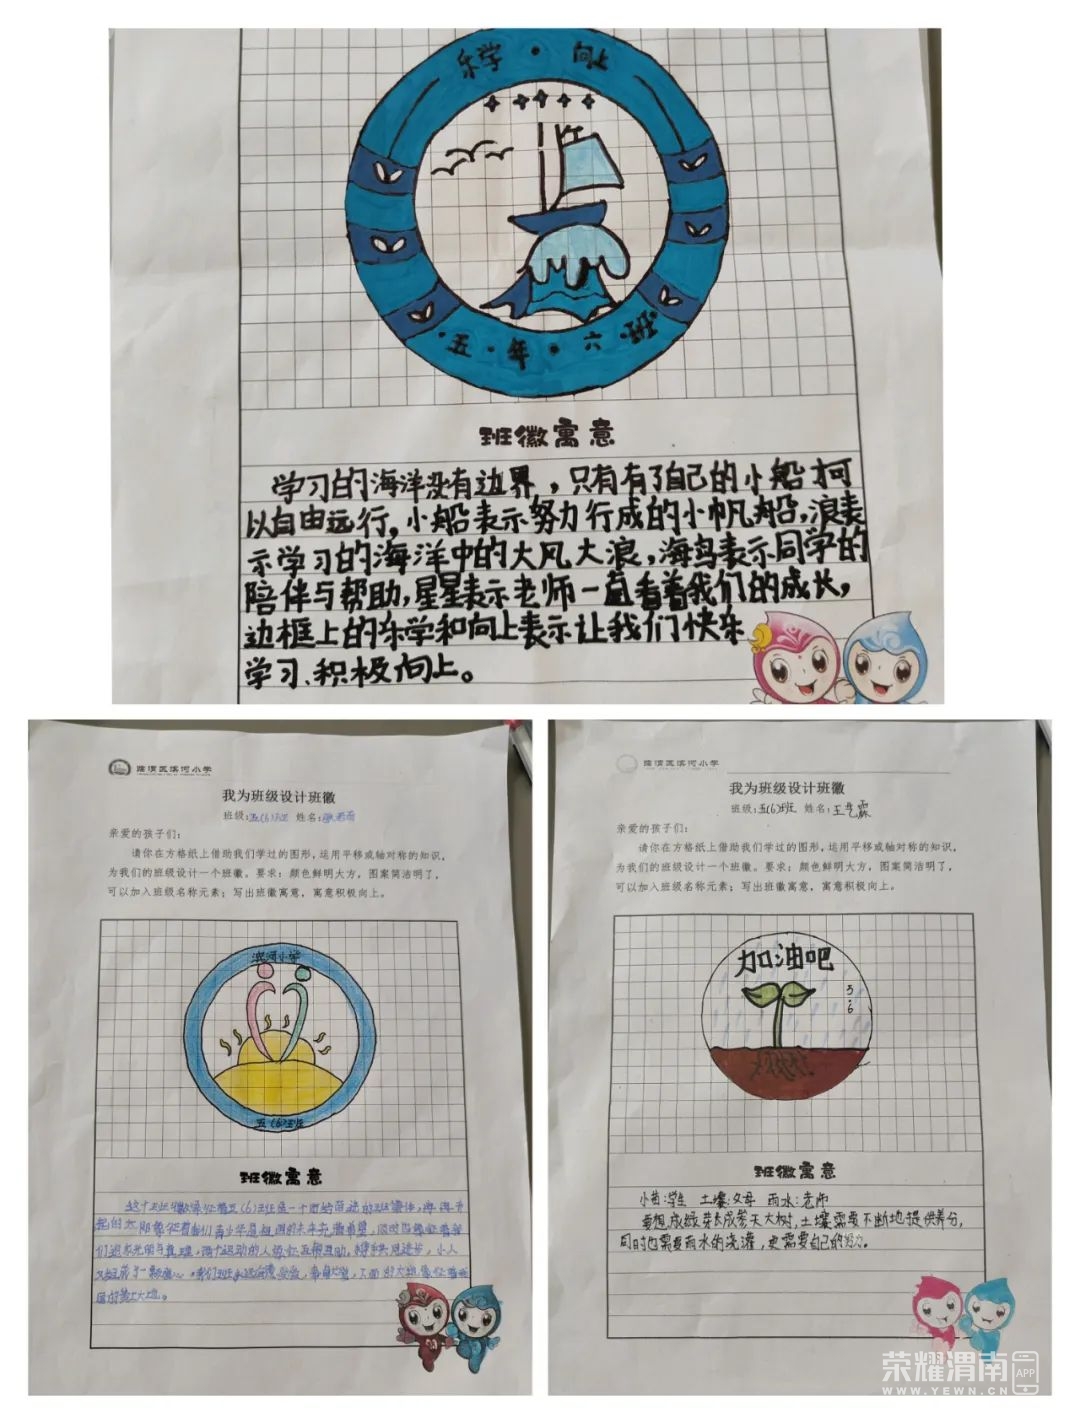 乐学·向上
·五·年·六·班·
班徽寓意
学习的海洋没有边界，只有有了自己的小船才可
以自由远行。小船表示努力行成的小帆船，浪表
示学习的海洋中的大风大浪，海鸟表示同学的
陪伴与帮助，星星表示老师一直看着我们的成长，
边框上的乐学和向上表示让我们快乐
学习、积极向上。
临渭区滨河小学
我为班级设计班徽
班级：五(6)班 姓名：
亲爱的孩子们：
请你在方格纸上借助我们学过的图形，运用平移或轴对称的知识，
为我们的班级设计一个班徽。要求：颜色鲜明大方，图案简洁明了，
可以加入班级名称元素；写出班徽寓意，寓意积极向上。
滨河小学
五(6)班
班徽寓意
这个班徽象征着五(6)班是一个团结的班集体，
的太阳象征着我们青少年是祖国的未来充满希望，同时也象征着我
们追求光明与真理，两个运动的人象征互帮互助，携手共同进步，小人
又组成了一颗爱心，我们班永远充满爱，下面的大地象征着
的黄土大地。
临渭区滨河小学
我为班级设计班徽
班级：五(6)班 姓名：王艺霖
亲爱的孩子们：
请你在方格纸上借助我们学过的图形，运用平移或轴对称的知识，
为我们的班级设计一个班徽。要求：颜色鲜明大方，图案简洁明了，
可以加入班级名称元素；写出班徽寓意，寓意积极向上。
加油吧
5·6
班徽寓意
小苗：学生 土壤：父母 雨水：老师
要想成嫩芽长成参天大树，土壤需要不断地提供养分，
同时也需要雨水的浇灌，更需要自己的努力。
荣耀渭南 APP
WWW.YEWN.CN